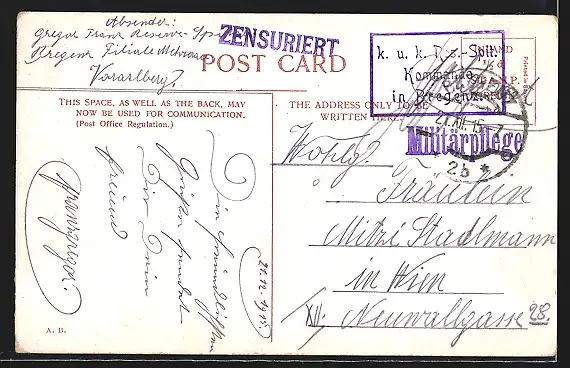 Absender:
Gregor Franz Reserve-Spital
Bregenz Filiale Mehrerau
Vorarlberg.
ZENSURIERT
POST CARD
k. u. k. Res.-Spit.
Kommando
in Bregenz
INLAND
½ d
Printed in
BREGENZ
27.XII.15-7
2b
Militärpflege
THIS SPACE, AS WELL AS THE BACK, MAY
NOW BE USED FOR COMMUNICATION.
(Post Office Regulation.)
THE ADDRESS ONLY TO BE
WRITTEN HERE.
21.12.1915
Die herzlichsten
Grüße sendet
Dir Dein
Freund
Franz Gregor.
Wohlg.
Fräulein
Mitzi Stadlmann
in Wien
XII. Neuwallgasse 28.
A. B.